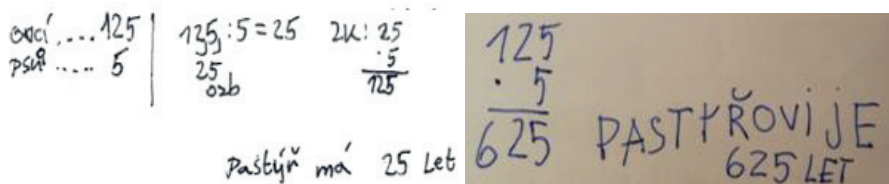 ovcí .... 125
psů ..... 5
125 : 5 = 25
25
0zb
Zk: 25
· 5
125
Pastýř má 25 let
125
· 5
625
PASTÝŘOVI JE
625 LET